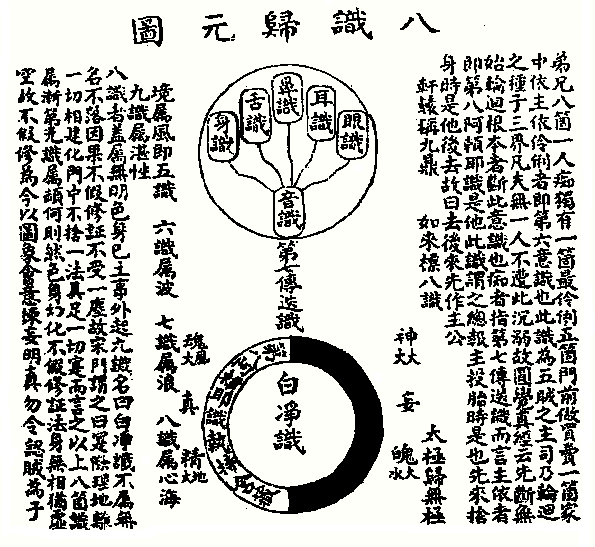 八識歸元圖
弟兄八箇一人痴獨有一箇最伶俐五箇門前做買賣一箇家
中依主依伶俐者即第六意識也此識為五賊之主司乃輪迴
之種子三界凡夫無一人不遭此沉溺故圓覺真經云先斷無
始輪迴根本者斷此意識也痴者指第七傳送識而言主依者
即第八阿頼耶識是他此識謂之總報主投胎時是也先來捨
身時是他後去故曰去後來先作主公
軒轅稱九鼎 如來標八識
眼識
耳識
鼻識
舌識
身識
音識
第七傳送識
太極歸無極
神火大
妄
魄水大
白淨識
魂風大
真
精地大
境屬風即五識 六識屬波 七識屬浪 八識屬心海
九識屬湛性
八識者蓋屬無明色身巳主事外起九識名曰白淨識不屬無
名不落因果不假修証不受一塵故宗門謂之曰寔際理地離
一切相建化門中不捨一法具足一切寔而言之以上八箇識
屬漸第九識屬頓何則然色身幻化不假修証法身無相猶虛
空故不假修為今以圖象會意煉妄明真勿令認賊為子